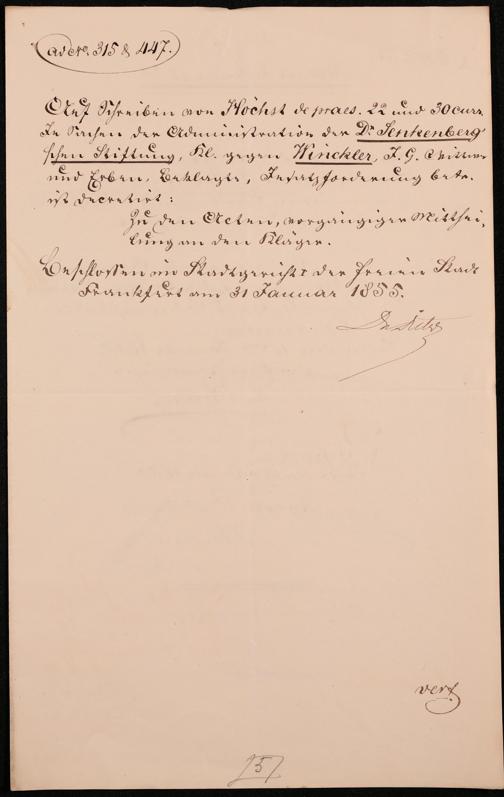 ad Nro 315 & 447.
Auf Schreiben von Höchst de praes. 22 und 30 curr.
In Sachen der Administration der Dr. Senkenberg'
schen Stiftung, Kl. gegen Winckler, J. G. Wittwe
und Erben, Beklagte, Insatzforderung betr.
ist decretirt:
Zu den Acten, vorgängiger Mitthei„
lung an den Kläger.
Beschlossen im Stadtgericht der freien Stadt
Frankfurt am 31 Januar 1855.
Dr.
vert
[5]